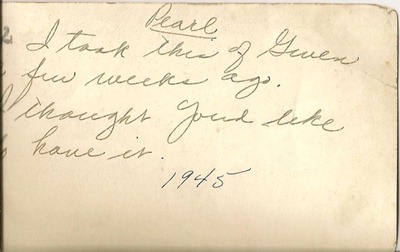 Pearl
I took this of Gwen
few weeks ago.
I thought you'd like
have it.
1945